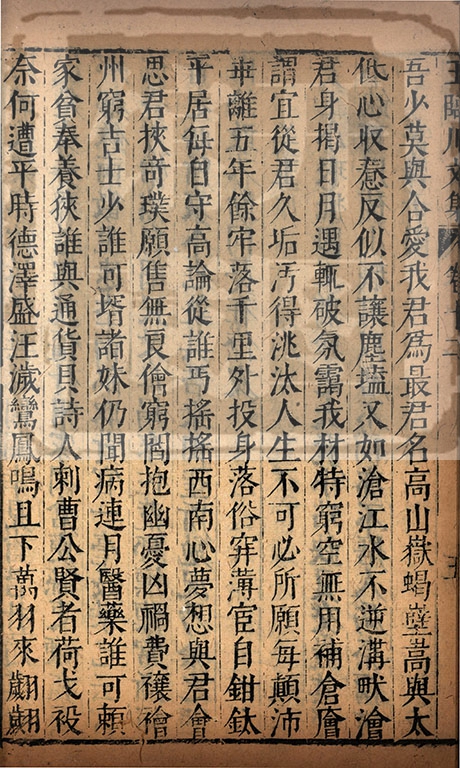 王臨川文集 卷十二 五
吾少莫與合愛我君爲最君名高山嶽蝎孽嵩與太
低心收惷反似不讓塵壒又如滄江水不逆溝畎澮
君身揭日月遇輒破氛靄我材特窮空無用補倉廥
謂宜從君久垢汚得洮汰人生不可必所願每顛沛
乖離五年餘牢落千里外投身落俗穽薄宦自鉗釱
平居每自守高論從誰丐搖搖西南心夢想與君會
思君挾奇璞願售無良儈窮閻抱幽憂凶禍費禳禬
州窮吉士少誰可壻諸妹仍聞病連月醫藥誰可賴
家貧奉養狹誰與通貨貝詩人刺曹公賢者荷戈祋
奈何遭平時德澤盛汪濊鸞鳳鳴且下萬羽來翽翽